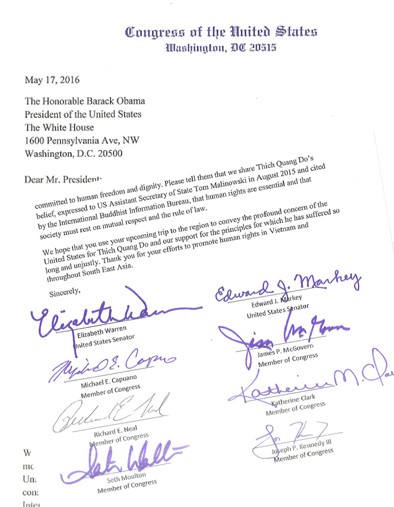 Congress of the United States
Washington, DC 20515
May 17, 2016
The Honorable Barack Obama
President of the United States
The White House
1600 Pennsylvania Ave, NW
Washington, D.C. 20500
Dear Mr. President
committed to human freedom and dignity. Please tell them that we share Thich Quang Do's
belief, expressed to US Assistant Secretary of State Tom Malinowski in August 2015 and cited
by the International Buddhist Information Bureau, that human rights are essential and that
society must rest on mutual respect and the rule of law.
We hope that you use your upcoming trip to the region to convey the profound concern of the
United States for Thich Quang Do and our support for the principles for which he has suffered so
long and unjustly. Thank you for your efforts to promote human rights in Vietnam and
throughout South East Asia.
Sincerely,
Elizabeth Warren
Elizabeth Warren
United States Senator
Edward J. Markey
Edward J. Markey
United States Senator
Michael E. Capuano
Michael E. Capuano
Member of Congress
Jim McGovern
James P. McGovern
Member of Congress
Richard E. Neal
Richard E. Neal
Member of Congress
Katherine M. Cla
Katherine Clark
Member of Congress
Seth Moulton
Member of Congress
Joseph P. Kennedy III
Member of Congress
W
Un
con